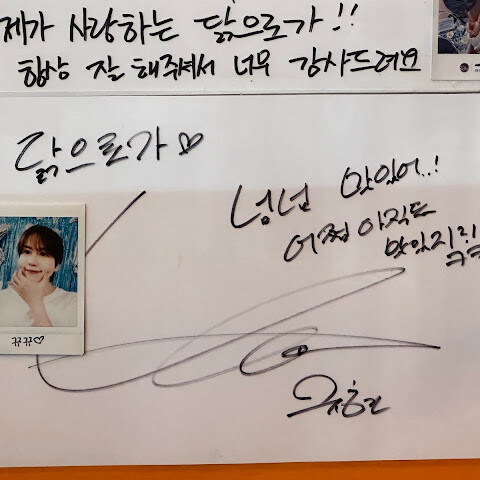 제가 사랑하는 닭으로가!!
항상 잘 해주셔서 너무 감사드려요
닭으로가♡
넝넙 맛있어..!
어쩜 아직도
맛있지?!
ㅋㅋ
뀨뀨♡